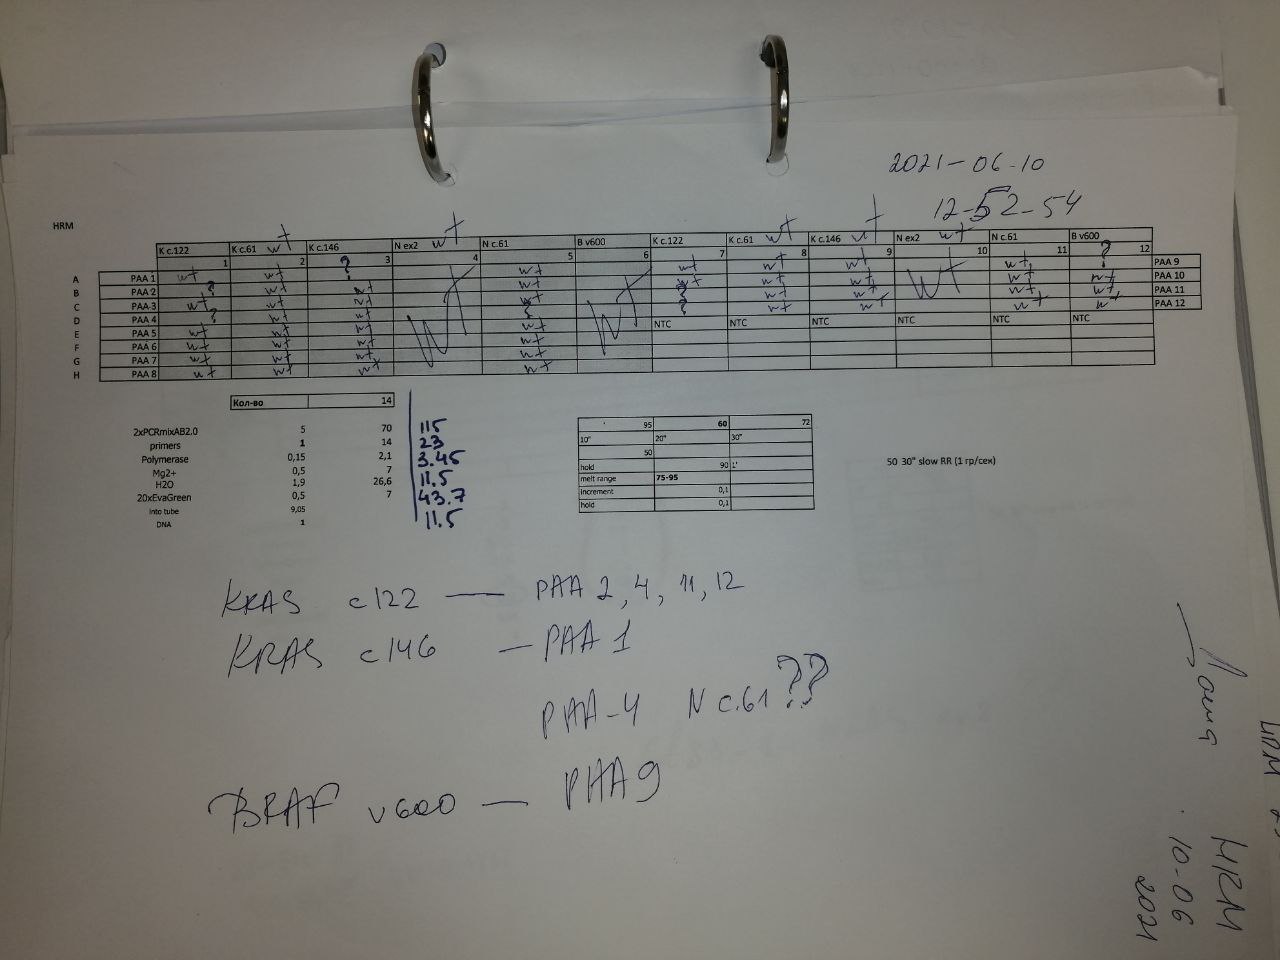 2021-06-10
12-52-54
HRM
wt wt wt wt wt
K c.122 K c.61 K c.146 N ex2 N c.61 B v600 K c.122 K c.61 K c.146 N ex2 N c.61 B v600
1 2 3 4 5 6 7 8 9 10 11 12
A PAA 1 wt wt ? wt wt wt wt wt wt wt wt ? PAA 9
B PAA 2 ? wt wt wt wt wt wt wt wt PAA 10
C PAA 3 wt wt wt wt ? wt wt wt wt PAA 11
D PAA 4 ? wt wt ? ? wt wt wt wt PAA 12
E PAA 5 wt wt wt wt NTC NTC NTC NTC NTC NTC
F PAA 6 wt wt wt wt
G PAA 7 wt wt wt wt
H PAA 8 wt wt wt wt
Кол-во 14
2xPCRmixAB2.0 5 70 115
primers 1 14 23
Polymerase 0,15 2,1 3.45
Mg2+ 0,5 7 11.5
H2O 1,9 26,6 43.7
20xEvaGreen 0,5 7 11.5
into tube 9,05
DNA 1
95 60 72
10" 20" 30"
50
hold 90 1'
melt range 75-95
increment 0,1
hold 0,1
50 30" slow RR (1 гр/сек)
KRAS c122 — PAA 2, 4, 11, 12
KRAS c146 — PAA 1
PAA-4 N c.61 ??
BRAF v600 — PAA 9
HRM
10-06
2021
HRM